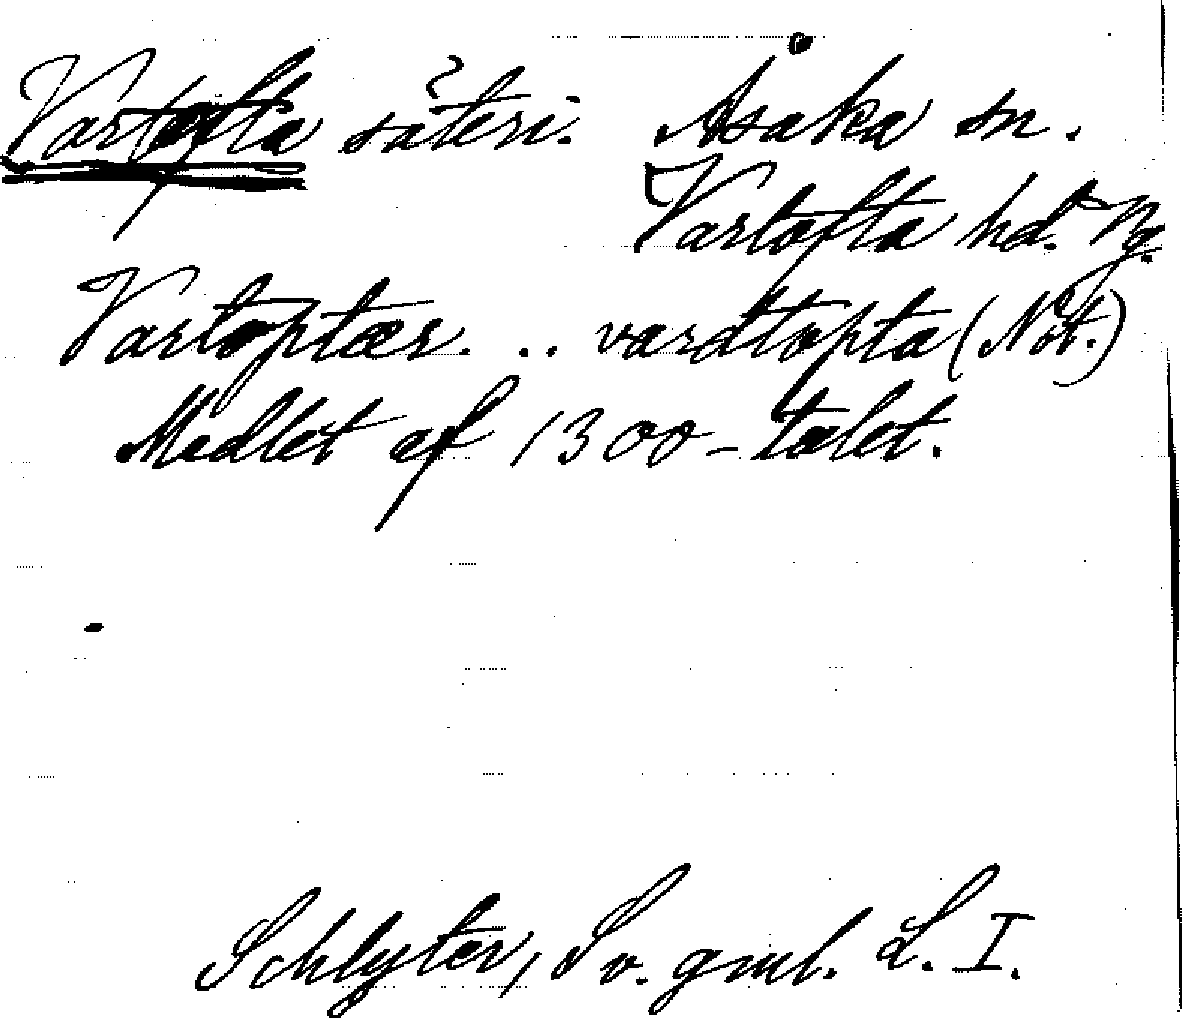 Vartofta säteri. Åsaka sn.
Vartofta hd. Vg.
Vartoptær. .. vardtopta (Not.)
Medlet af 1300-talet.
Schlyter, Sv. gml. L. I.